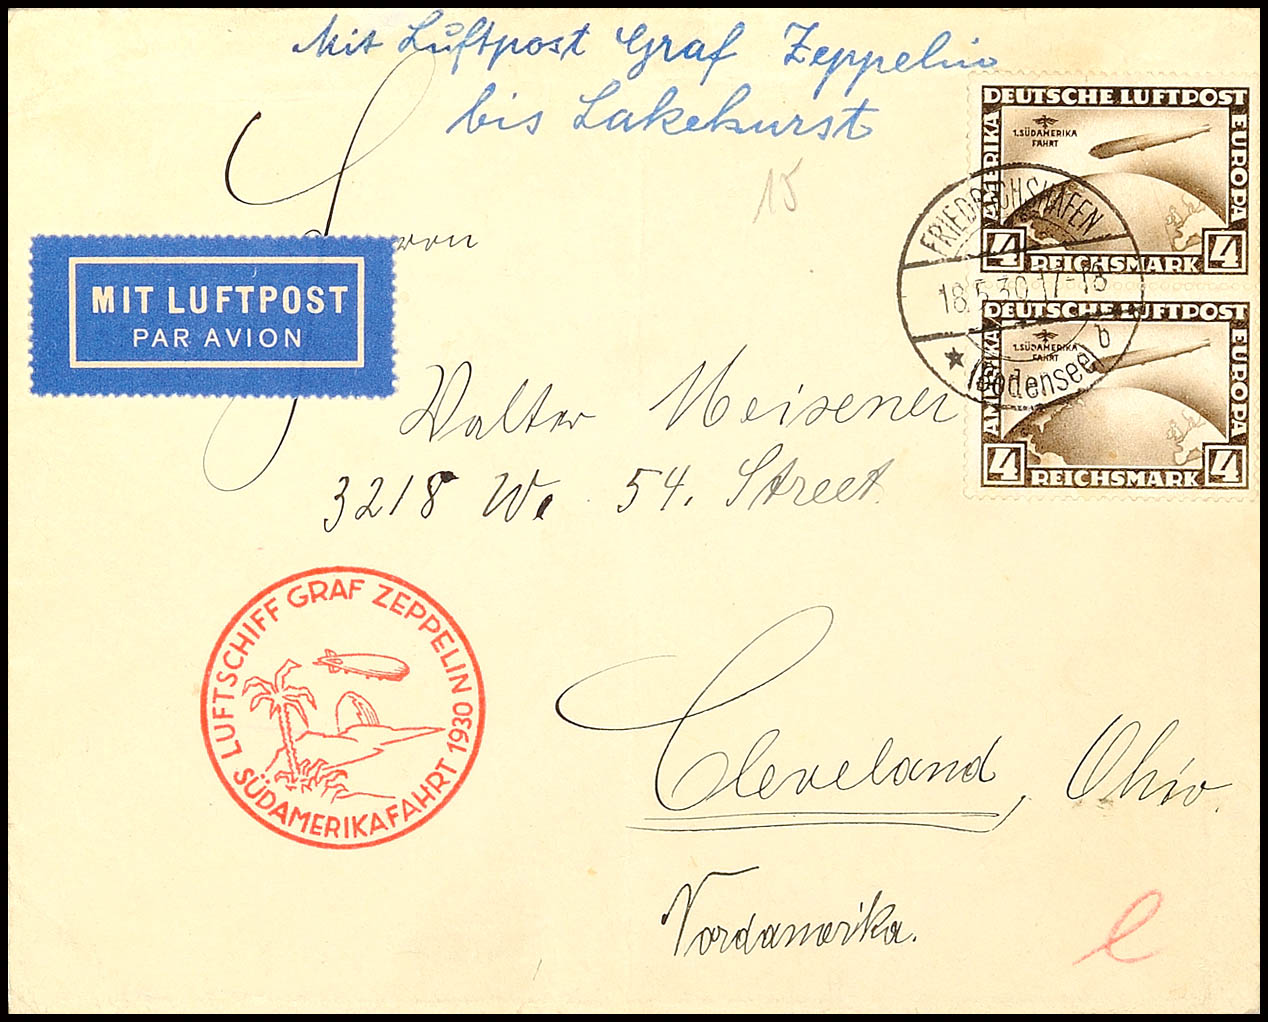 Mit Luftpost Graf Zeppelin
bis Lakehurst
DEUTSCHE LUFTPOST
AMERIKA
EUROPA
1. SÜDAMERIKA
FAHRT
4 REICHSMARK 4
DEUTSCHE LUFTPOST
AMERIKA
EUROPA
1. SÜDAMERIKA
FAHRT
4 REICHSMARK 4
FRIEDRICHSHAFEN
18.5.30.17-18
b
(Bodensee)
15
Herrn
MIT LUFTPOST
PAR AVION
Walter Meisener
3218 W. 54. Street.
LUFTSCHIFF GRAF ZEPPELIN
SÜDAMERIKAFAHRT 1930
Cleveland, Ohio.
Nordamerika.